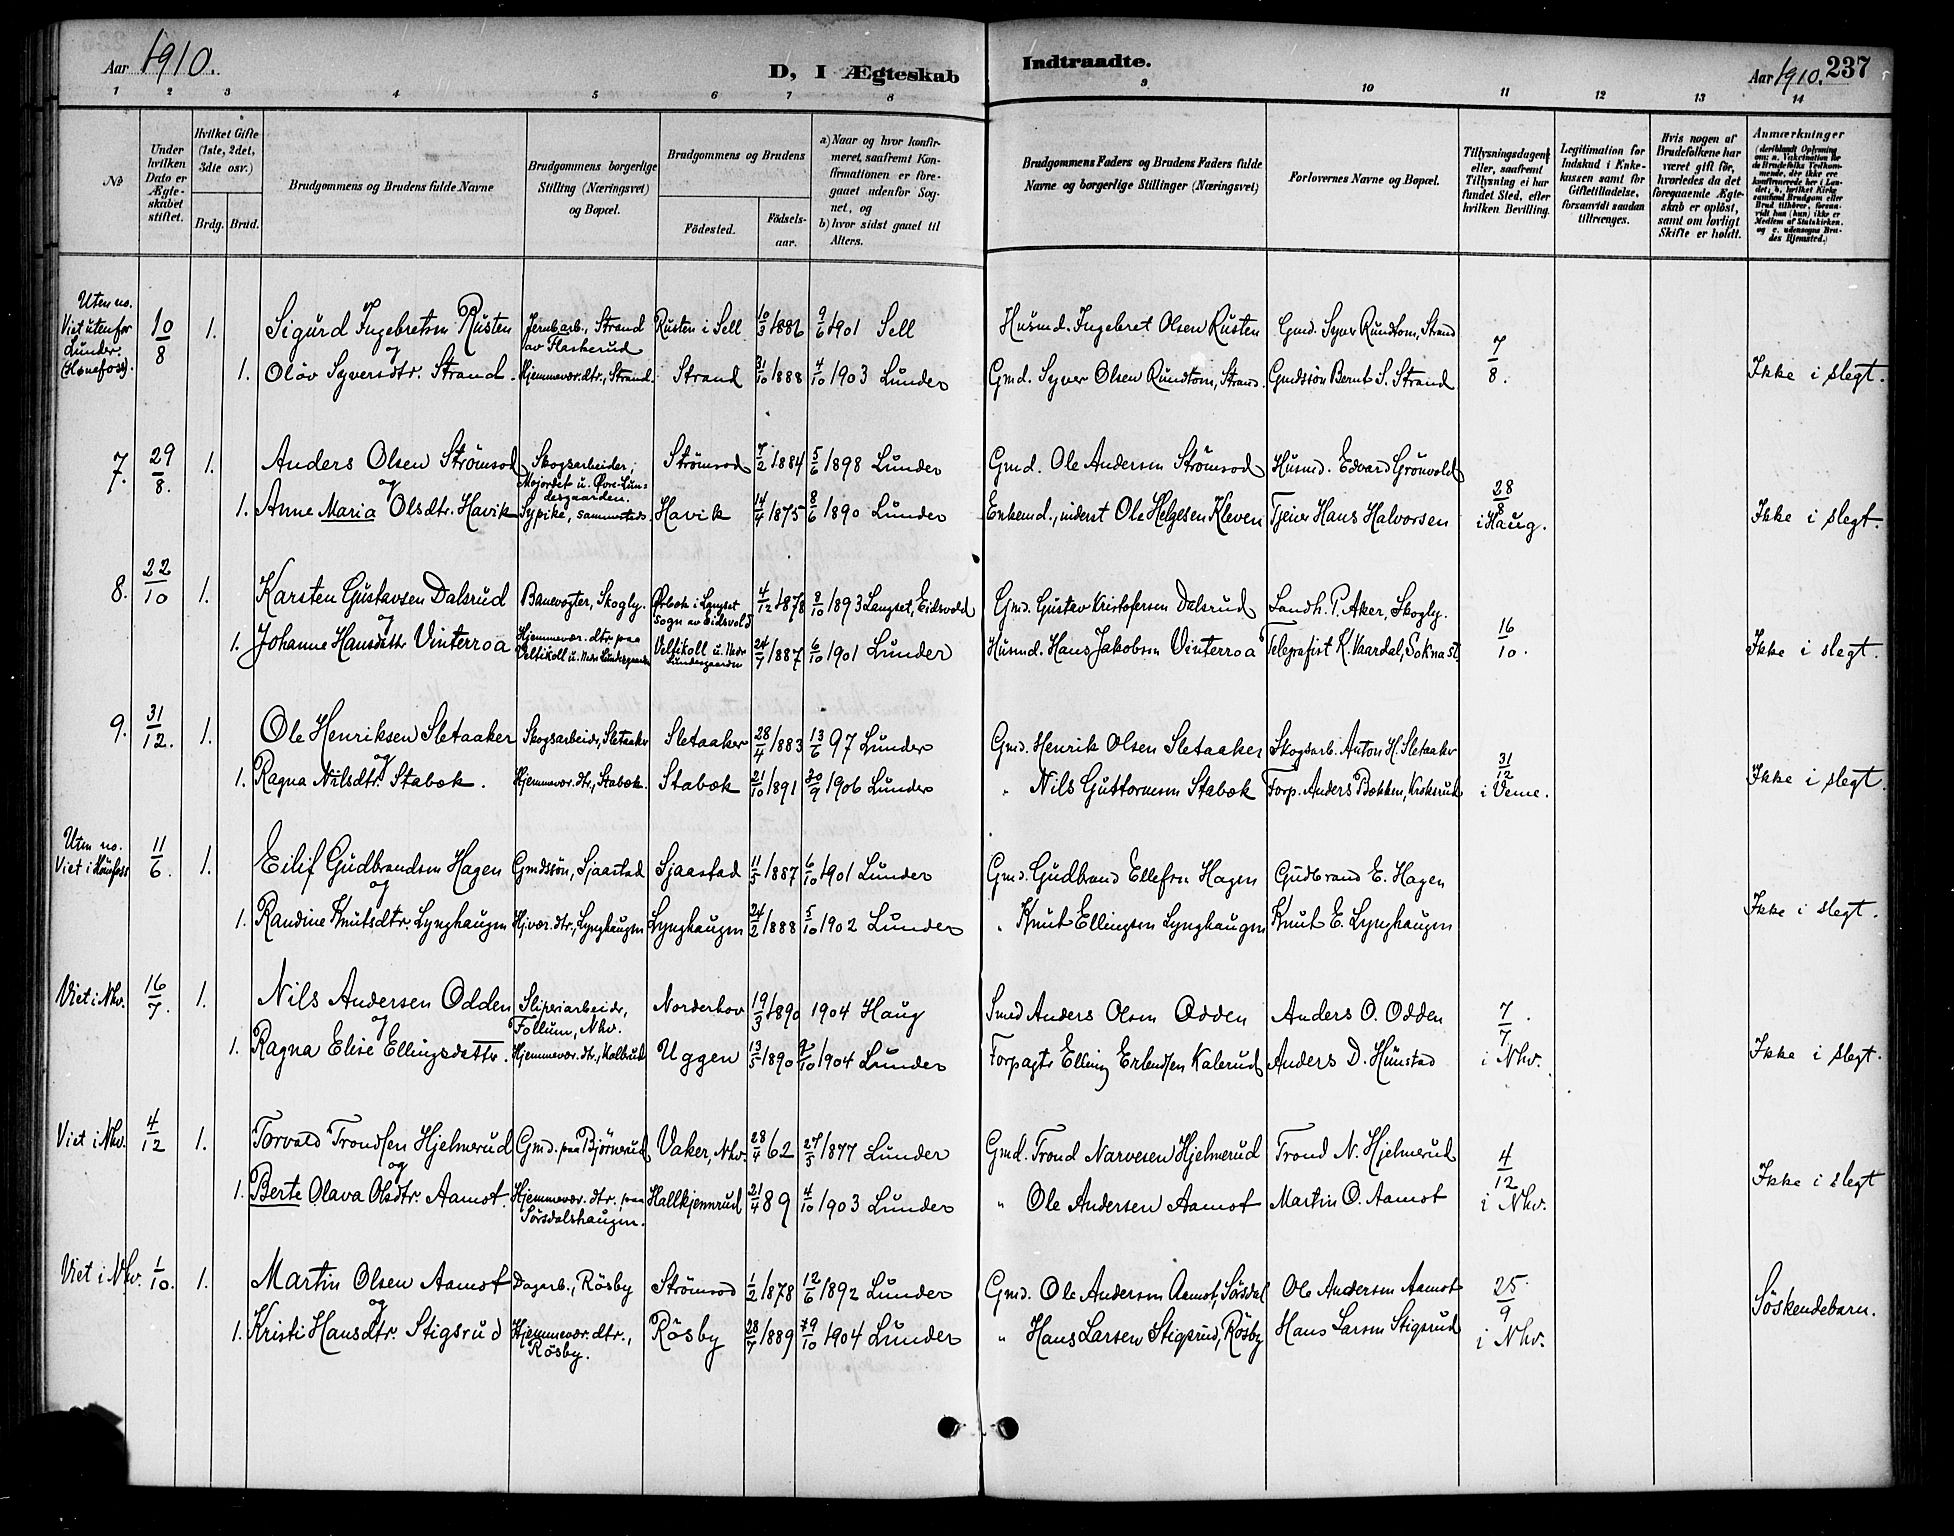 Aar 1910.
D, I Ægteskab Indtraadte.
Aar 1910. 237
1 2 3 4 5 6 7 8 9 10 11 12 13 14
No
Under hvilken Dato er Ægteskabet stiftet.
Hvilket Gifte (1ste, 2det, 3die osv.)
Brdg. Brud.
Brudgommens og Brudens fulde Navne
Brudgommens borgerlige Stilling (Næringsvei) og Bopæl.
Brudgommens og Brudens
Födested. Födselsaar.
a) Naar og hvor konfirmeret, saafremt Konfirmationen er foregaaet udenfor Sognet, og
b) hvor sidst gaaet til Alters.
Brudgommens Faders og Brudens Faders fulde Navne og borgerlige Stillinger (Næringsvei)
Forlovernes Navne og Bopæl.
Tillysningsdagen, eller, saafremt Tillysning ei har fundet Sted, efter hvilken Bevilling.
Legitimation for Indskud i Enkekassen samt for Giftetilladelse, forsaavidt saadan tiltrænges.
Hvis nogen af Brudefolkene har været gift för, hvorledes da det foregaaende Ægteskab er oplöst, samt om lovligt Skifte er holdt.
Anmærkninger
Uten no. Viet utenfor Lunder. (Hønefoss). 10/8 1. Sigurd Ingebretsen Rusten Jernb.arb., Strand av Flaskerud Rusten i Sell 10/3 1886 9/6 1901 Sell Husmd. Ingebret Olsen Rusten Gmd. Syver Rundtom, Strand
og
1. Olöv Syversdtr. Strand. Hjemmevær. dtr., Strand. Strand 31/10 1888 4/10 1903 Lunder Gmd. Syver Olsen Rundtom, Strand. Gmdssön Bernt S. Strand 7/8. Ikke i slegt.
7. 29/8. 1. Anders Olsen Strömsod Skogsarbeider, Mojordet u. Øvre-Lundesgaarden. Strömsod 7/2 1884 5/6 1898 Lunder Gmd. Ole Andersen Strömsod Husmd. Edvard Grönvold
og
1. Anne Maria Olsdtr. Havik Sypike, sammesteds. Havik 14/4 1875 8/6 1890 Lunder Enkemd., inderst Ole Helgesen Kleven Tjener Hans Halvorsen 28/8 i Haug. Ikke i slegt.
8. 22/10 1. Karsten Gustavsen Dalsrud Banevogter, Skogly. Ørbæk i Langset sogn av Eidsvold 4/12 1878 8/10 1893 Langset, Eidsvold Gmd. Gustav Kristofersen Dalsrud Landh. P. Aker, Skogly.
og
1. Johanne Hansdatter Vinterroa Hjemmevær. dtr. paa Veltikoll u. Nedr. Lundesgaarden Veltikoll u. Nedr. Lundesgaarden 24/7 1887 6/10 1901 Lunder Husmd. Hans Jakobsen Vinterroa Telegrafist K. Vaardal, Sokna st. 16/10. Ikke i slegt.
9. 31/12. 1. Ole Henriksen Sletaaker Skogsarbeider, Sletaaker Sletaaker 28/4 1883 13/6 97 Lunder Gmd. Henrik Olsen Sletaaker Skogsarb. Anton H. Sletaaker
og
1. Ragna Nilsdtr. Stabæk. Hjemmevær. dtr., Stabæk. Stabæk 21/10 1891 30/9 1906 Lunder " Nils Guttormsen Stabæk Forp. Anders Bækken, Kroksrud 31/12 i Veme. Ikke i slegt.
Uten no. Viet i Hønefoss 11/6. 1. Eilif Gudbrandsen Hagen Gmdssön, Sjaastad Sjaastad 11/5 1887 6/10 1901 Lunder Gmd. Gudbrand Ellefsen Hagen Gudbrand E. Hagen
og
1. Randine Knutsdtr. Lynghaugen Hj.vær. dtr., Lynghaugen Lynghaugen 24/2 1888 5/10 1902 Lunder " Knut Ellingsen Lynghaugen Knut E. Lynghaugen Ikke i slegt.
Viet i Nhv. 16/7. 1. Nils Andersen Odden Sliperiarbeider, Follum, Nhv. Norderhov 19/3 1890 1904 Haug Smed Anders Olsen Odden Anders O. Odden
og
1. Ragna Elise Ellingsdatter. Hjemmevær. dtr., Kolbrud Uggen 13/5 1890 2/10 1904 Lunder Forpagter Elling Erlendsen Kalerud Anders D. Hunstad 7/7 i Nhv. Ikke i slegt.
Viet i Nhv. 4/12 1. Torvald Trondsen Hjelmerud Gmd. paa Bjørnerud Vaker, Nhv. 28/4 62 27/5 1877 Lunder Gmd. Trond Narvesen Hjelmerud Trond N. Hjelmerud
og
1. Berte Olava Olsdtr. Aamot. Hjemmevær. dtr. paa Sørsdalshaugen. Hallkjennrud 21/4 89 4/10 1903 Lunder " Ole Andersen Aamot Martin O. Aamot 4/12 i Nhv. Ikke i slegt
Viet i Nhv. 1/10. 1. Martin Olsen Aamot Dagarb., Rösby Strömsod 1/2 1878 12/6 1892 Lunder Gmd. Ole Andersen Aamot, Sørsdal Ole Andersen Aamot
og
1. Kristi Hansdtr. Stigsrud Hjemmevær. dtr., Rösby. Rösby 28/7 1889 29/10 1904 Lunder " Hans Larsen Stigsrud, Rösby Hans Larsen Stigsrud 25/9 i Nhv. Söskendebarn.